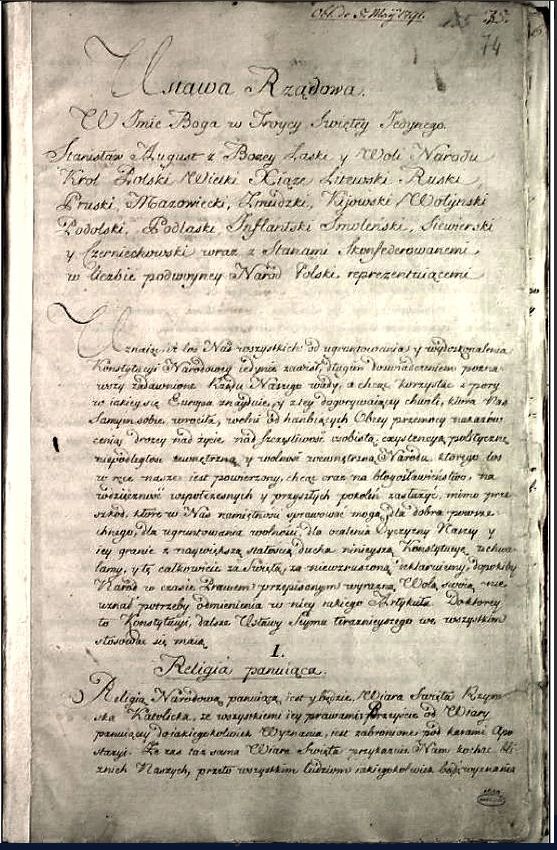 Obl. de 5. Maij 1791.
74
Ustawa Rządowa.
W Imie Boga w Troycy Swiętey Jedynego.
Stanisław August z Bozey Łaski y Woli Narodu
Krol Polski Wielki Xiąze Litewski Ruski
Pruski, Mazowiecki, Zmudzki, Kijowski Wołyński
Podolski, Podlaski, Inflantski Smoleński, Siewierski
y Czerniechowski wraz z Stanami Skonfederowanemi
w liczbie podwoyney Naród Polski reprezentuiącemi
Uznaiąc, iż los Nas wszystkich od ugruntowania y wydoskonalenia
Konstytucyi Narodowey iedynie zawisł, długim doswiadczeniem pozna-
wszy zadawnione Rządu Naszego wady, a chcąc korzystać z pory
w iakiey się Europa znayduie, y z tey dogorywaiącey chwili, która Nas
Samym sobie wrociła, wolni od hanbiących Obcey przemocy nakazów
ceniąc drozey nad zycie nad szczęsliwosć osobistą exystencyą polityczną
niepodległosć zewnętrzną y wolnosć wewnętrzną Narodu, ktorego los
w ręce nasze iest powierzony, chcąc oraz na błogosławieństwo, na
wdzięcznosć wspołczesnych y przyszłych pokoleń zasłużyć, mimo prze-
szkod, które w Nas namiętnosci sprawować mogą, dla dobra powsze-
chnego, dla ugruntowania wolnosci, dla ocalenia Oyczyzny Naszey y
iey granic z naywiększą stałoscią ducha ninieyszą Konstytucyą uchwa-
lamy, y tę całkowicie za Swiętą, za niewzruszoną deklaruiemy, dopokiby
Naród w czasie Prawem przepisanym wyrazną Wolą swoią nie
uznał potrzeby odmienienia w niey iakiego Artykułu. Do ktorey
to Konstytucyi, dalsze Ustawy Seymu terazнieyszego we wszystkim
stosować się maią
I.
Religia panuiąca.
Religią Narodową panuiącą iest y będzie Wiara Swięta Rzym-
ska Katolicka, ze wszystkiemi iey prawami. Przeyscie od Wiary
panuiącey do iakiegokolwiek Wyznania, iest zabronione pod karami Apo-
stazyi. Ze zas taz sama Wiara Swięta przykazuie Nam kochać bli-
znich Naszych, przeto wszystkim ludziom iakiegokolwiek bądz wyznania